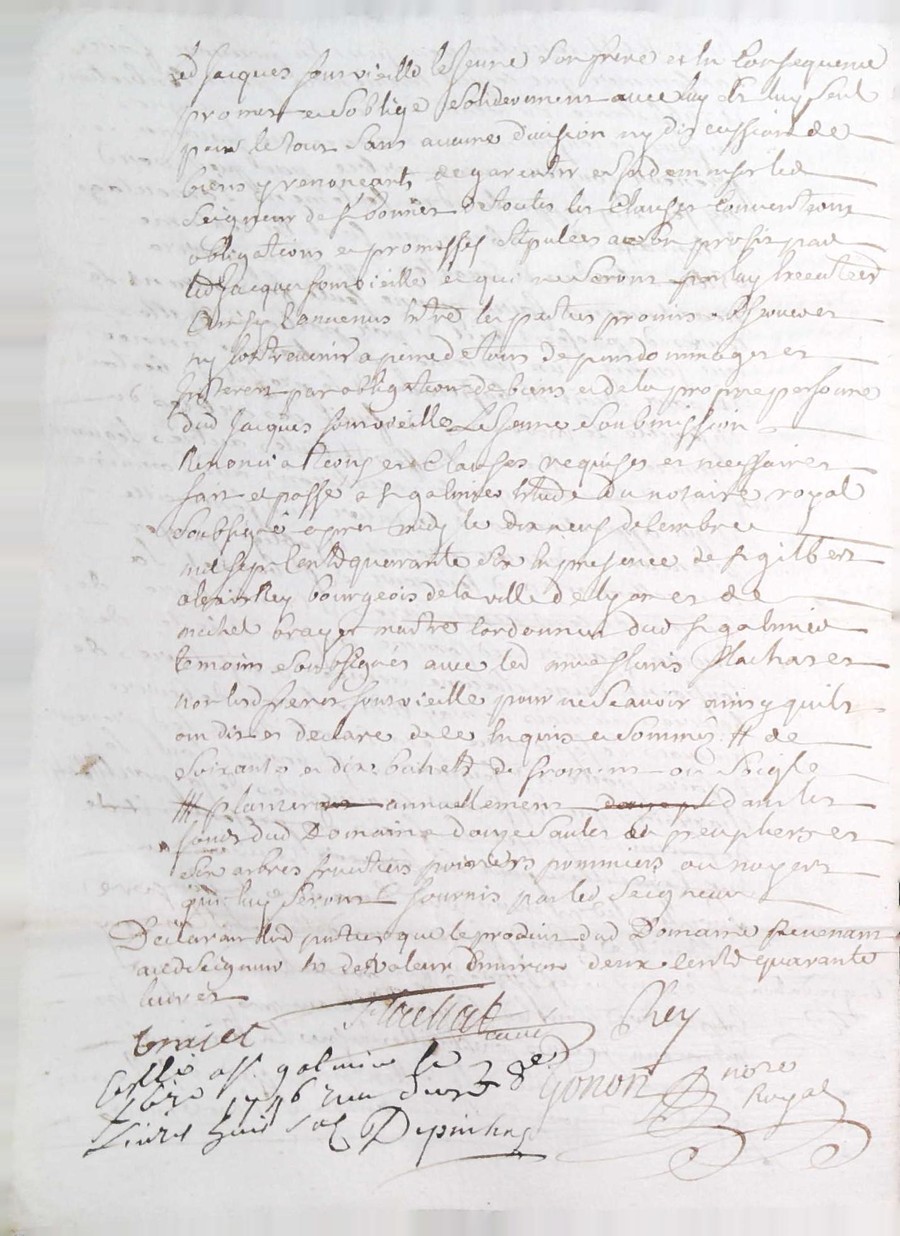 dud Jacques fourvieille le Jeune son frere et en Consequence
promet et soblige solidérement avec luy et luy seul
pour le tout sans aucune division ny discussion de
biens y renonceant de garentir et Indemniser led
Seigneur de St bonnet de toutes les Clauses Conventions
obligations et promesses stipulées a son profit par
led Jacques fourvieille et qui ne seront par luy Executées
Ainsy Convenus Entre les parties promis observer et
ny Contrevenir a peine de tous depens dommages et
Interets par obligation de biens et de la propre personne
dud Jacques fourvieille Le Jeune soubmission
Renonciations et Clauses requises et necessaires
fait et passé a St galmier Etude du notaire royal
soubsigné apres midy le dix neuf decembre
mil sept cent quarante six En presence de Sr gilbert
Rey bourgeois de la ville de lyon et de
michel brayet maitre Cordonnier dud St galmier
temoins soubsignés avec led Sieur flachat et
non lesd freres fourvieille pour ne scavoir ainsy quils
ont dit et declaré de ce Enquis et sommés # de
soixante et dix bichets de froment ou seigle
## planter annuellement dans les
fonds dud Domaine douze saules et peupliers et
six arbres fruitiers poiriers pommiers ou noyers
qui luy seront fournis par led Seigneur
Declarant lesd parties que le produit dud Domaine Revenant
aud Seigneur est de valeur denviron deux cent quarante
livres
brayet flachat Rey
Collé a St galmier le
Xbre 1746 reçu
Livres huit sols Depinhac
gonon nore
Royal